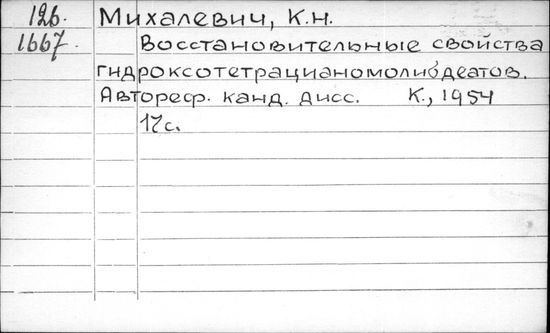 126.
1667.
Михалевич, К.н.
Восстановительные свойства
гидроксотетрацианомолибдеатов.
Автореф. канд. дисс. К., 1954
17с.